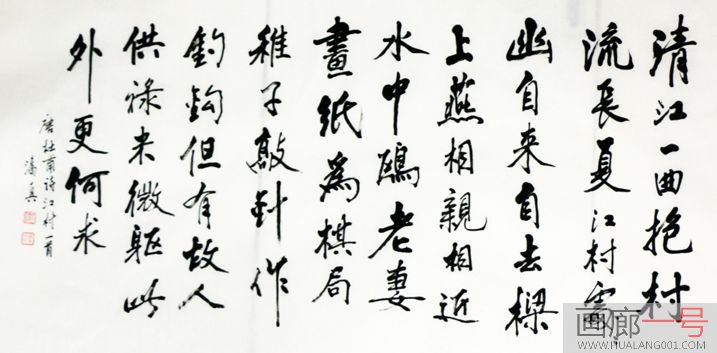 清江一曲抱村
流長夏江村事々
幽自来自去樑
上燕相親相近
水中鷗老妻
畫紙為棋局
稚子敲針作
釣鈎但有故人
供禄米微軀此
外更何求
唐杜甫詩江村一首
潘真
画廊一号
WWW.HUALANG001.COM